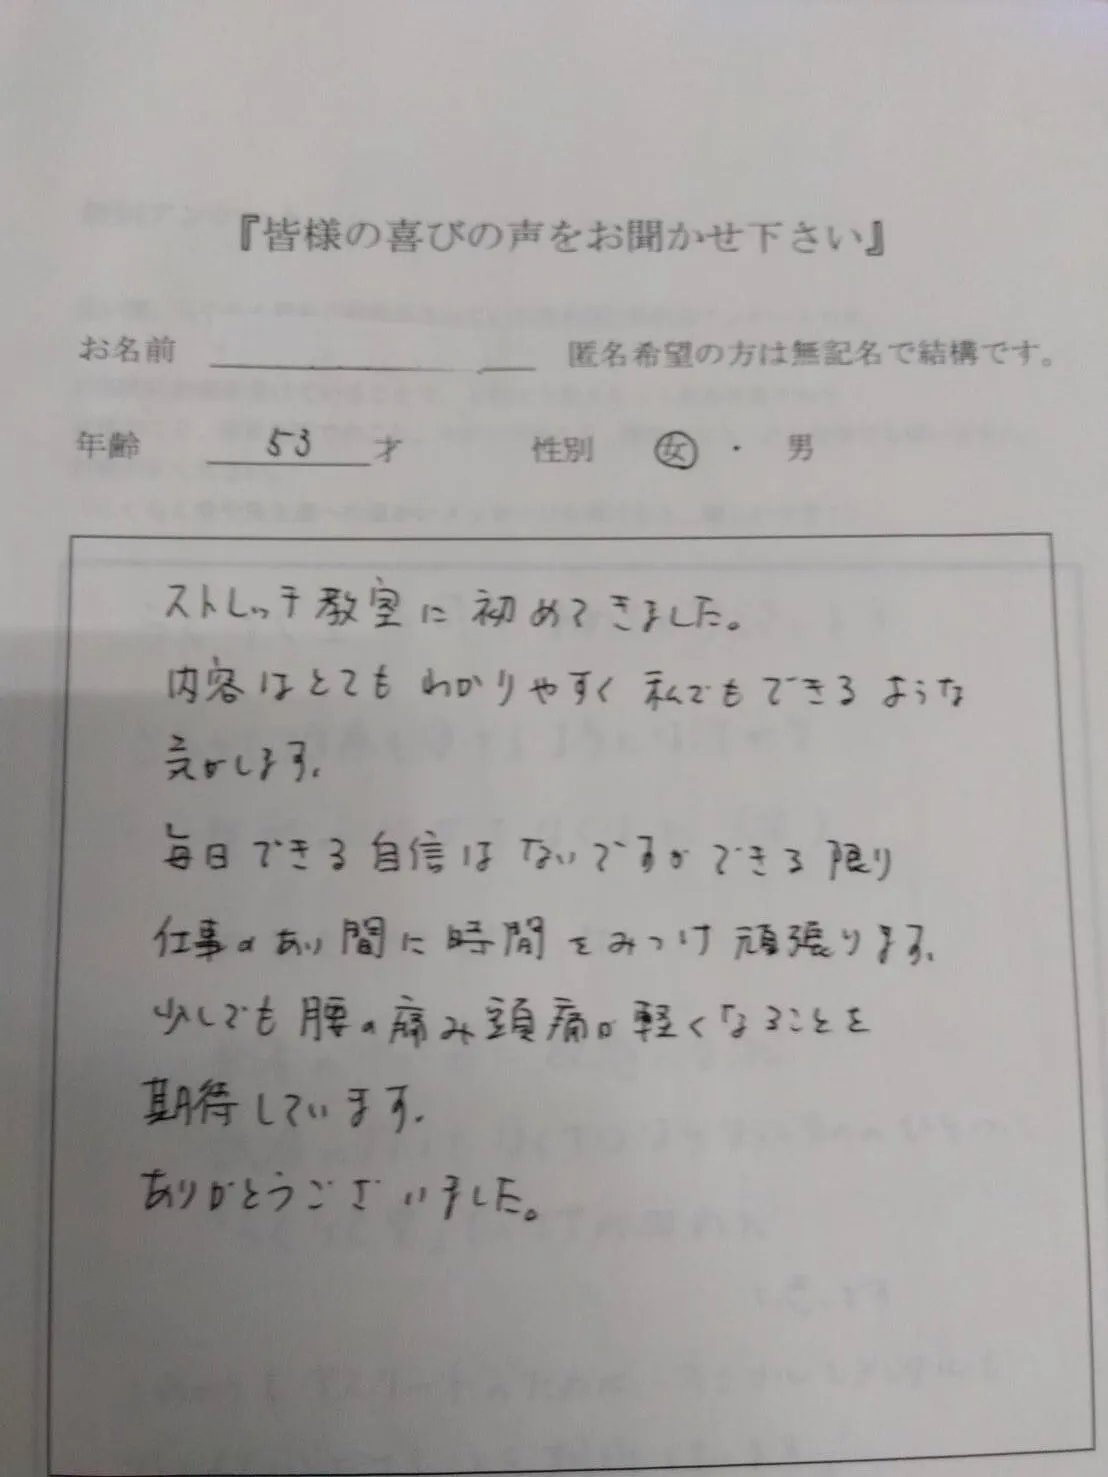 『皆様の喜びの声をお聞かせ下さい』
お名前 匿名希望の方は無記名で結構です。
年齢 53 才 性別 女 ・ 男
ストレッチ教室に初めてきました。
内容はとてもわかりやすく私でもできるような
気がします。
毎日できる自信はないですができる限り
仕事のあい間に時間をみつけ頑張ります。
少しでも腰の痛み頭痛が軽くなることを
期待しています。
ありがとうございました。